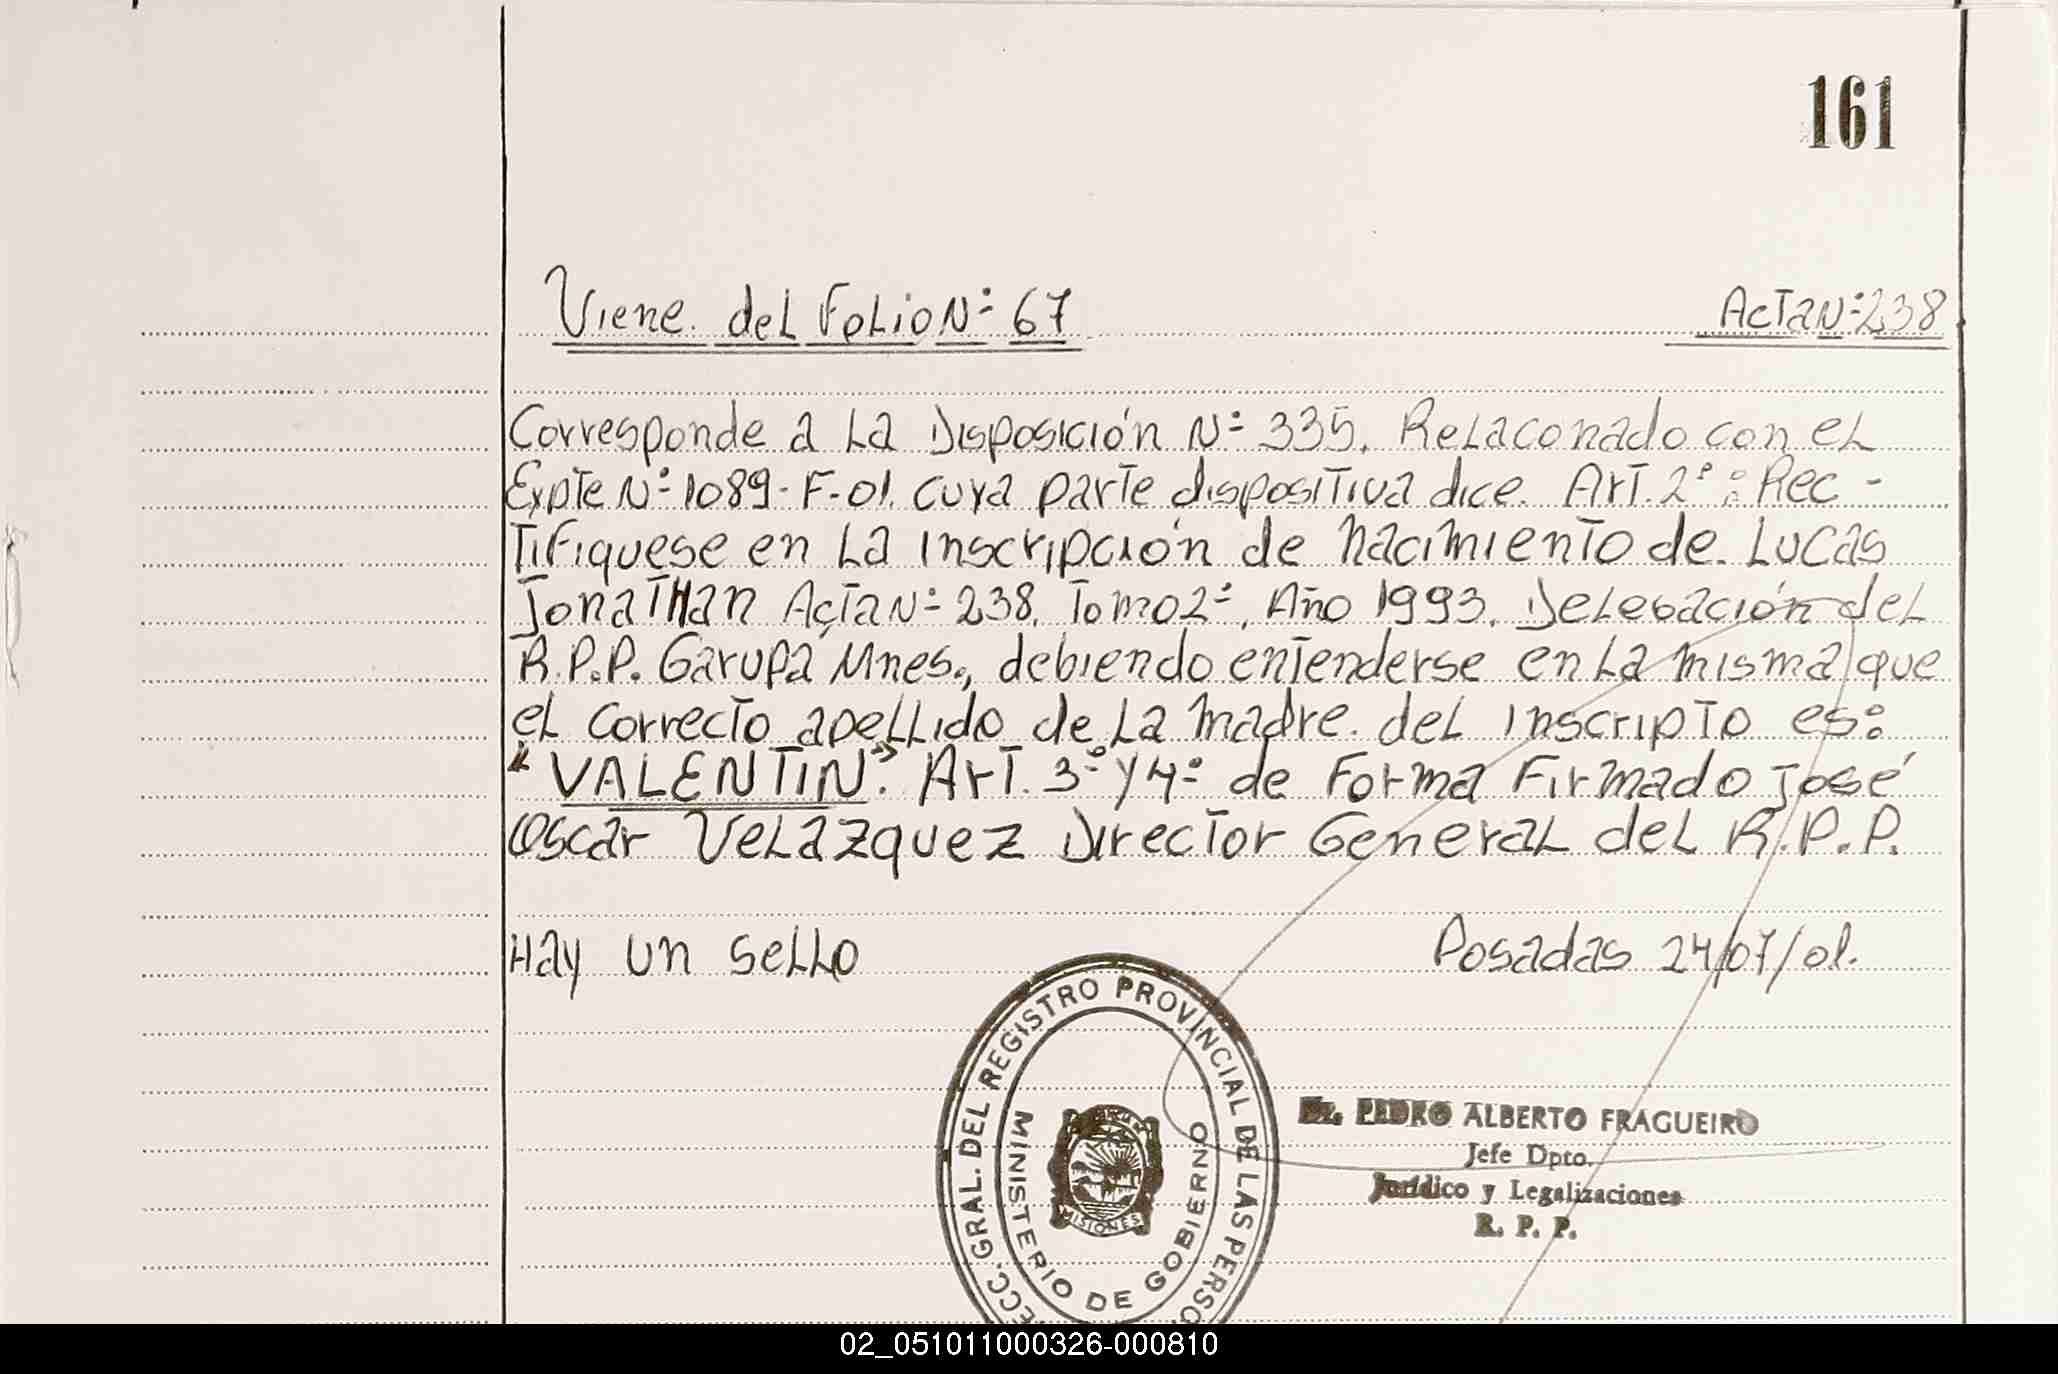 161
Viene del Folio Nº 67 Acta Nº 238
Corresponde a la Disposición Nº 335. Relaconado con el
Expte Nº 1089-F-01. cuya parte dispositiva dice. Art. 2º: Rec-
tifiquese en la inscripción de nacimiento de Lucas
Jonathan Acta Nº 238, Tomo 2º, Año 1993. Delegación del
R.P.P. Garupá Mnes., debiendo entenderse en la misma que
el correcto apellido de la madre del inscripto es:
"VALENTIN". Art. 3º y 4º de forma Firmado José
Oscar Velazquez Director General del R.P.P.
Hay un sello Posadas 24/07/01.
ECC. GRAL. DEL REGISTRO PROVINCIAL DE LAS PERSO
MINISTERIO DE GOBIERNO
MISIONES
Dr. PEDRO ALBERTO FRAGUEIRO
Jefe Dpto.
Jurídico y Legalizaciones
R. P. P.
02_051011000326-000810